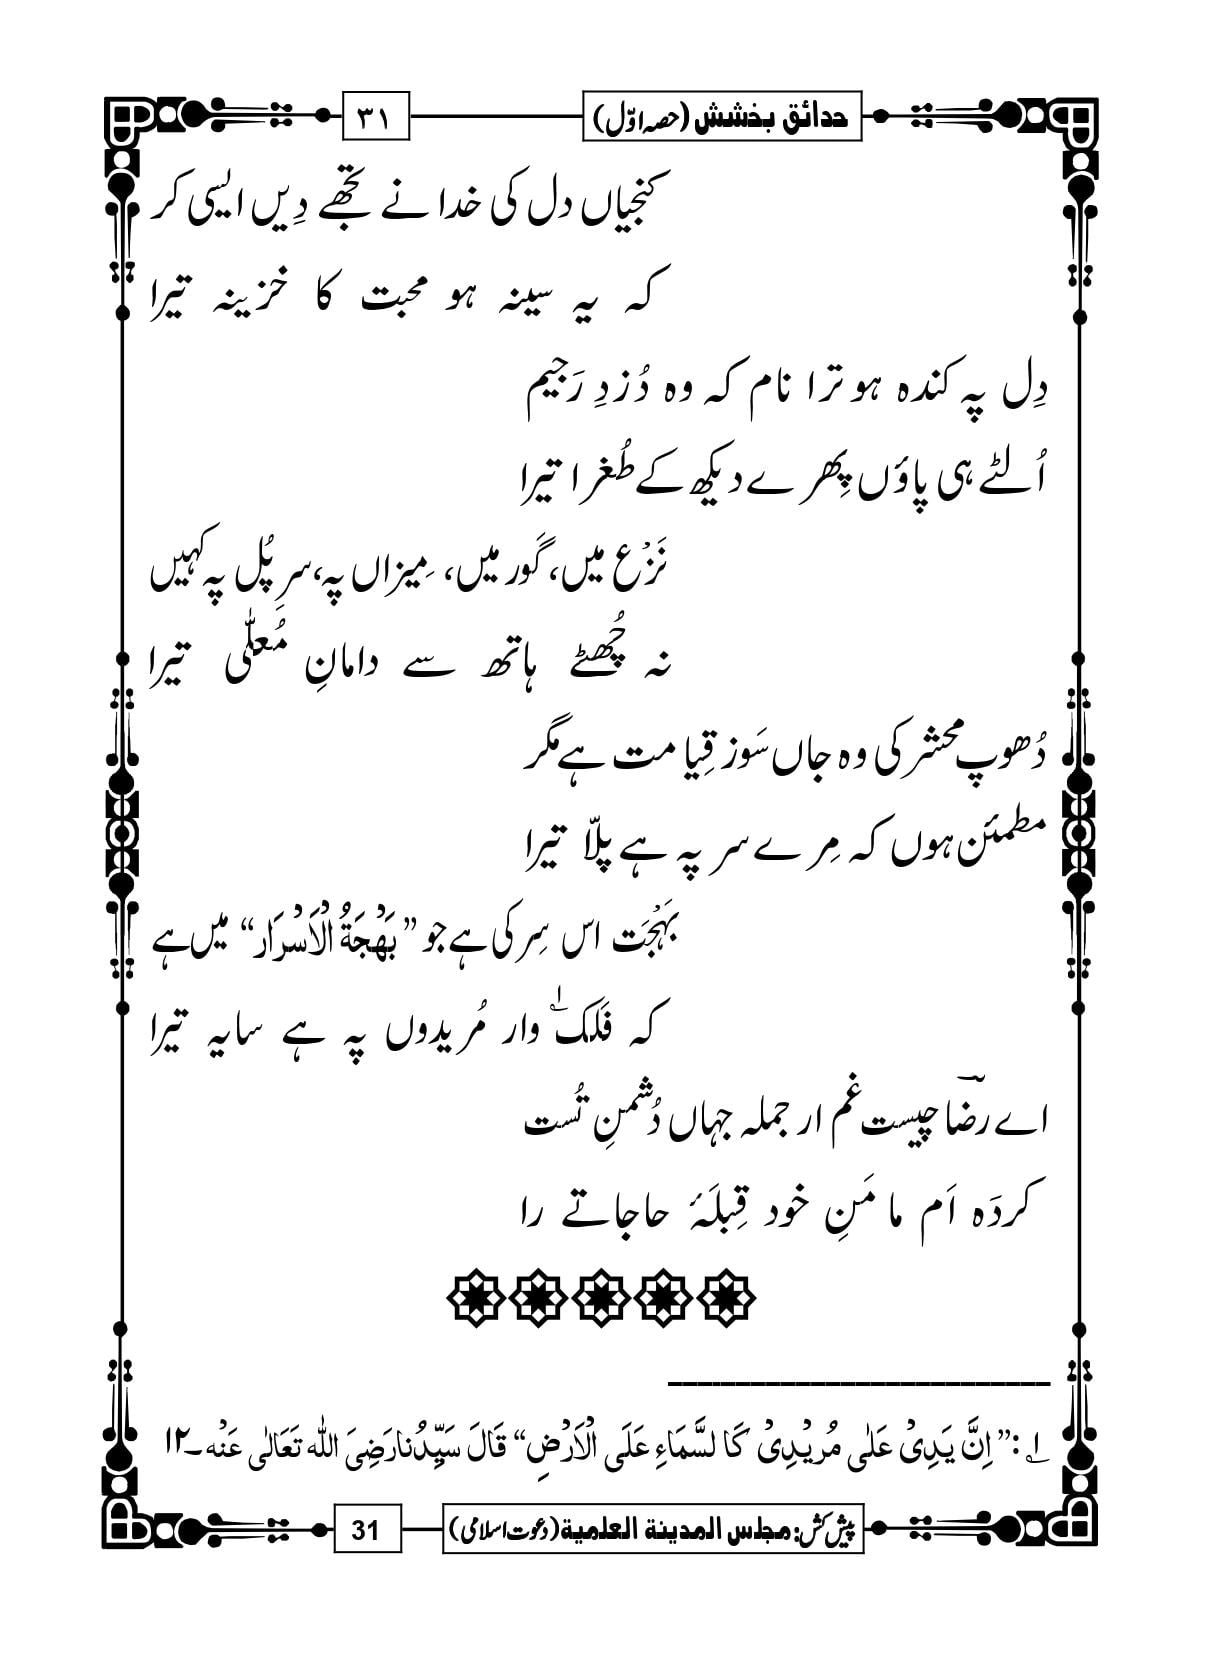 حدائق بخشش (حصہ اوّل)
۳۱
کنجیاں دل کی خدا نے تجھے دِیں ایسی کر
کہ یہ سینہ ہو محبت کا خزینہ تیرا
دِل پہ کندہ ہو ترا نام کہ وہ دُزدِ رَجیم
اُلٹے ہی پاؤں پِھرے دیکھ کے طُغرا تیرا
نَزْع میں، گَور میں، مِیزاں پہ، سرِ پُل پہ کہیں
نہ چُھٹے ہاتھ سے دامانِ مُعلّٰی تیرا
دُھوپ محشر کی وہ جاں سَوز قِیامت ہے مگر
مطمئن ہوں کہ مِرے سر پہ ہے پلّا تیرا
بَہْجَت اس سِر کی ہے جو ”بَهْجَةُ الْاَسْرَار“ میں ہے
کہ فَلک۱؎ وار مُریدوں پہ ہے سایہ تیرا
اے رضؔا چیست غم ار جملہ جہاں دُشمنِ تُست
کردَہ اَم ما مَنِ خود قِبلَۂ حاجاتے را
۱؎ : ”اِنَّ يَدِىْ عَلٰى مُرِيْدِىْ كَا لسَّمَاءِ عَلَى الْاَرْضِ“ قَالَ سَيِّدُنا رَضِىَ الله تَعَالٰى عَنْه۔۱۲
پیش کش: مجلس المدینۃ العلمیۃ (دعوت اسلامی)
31